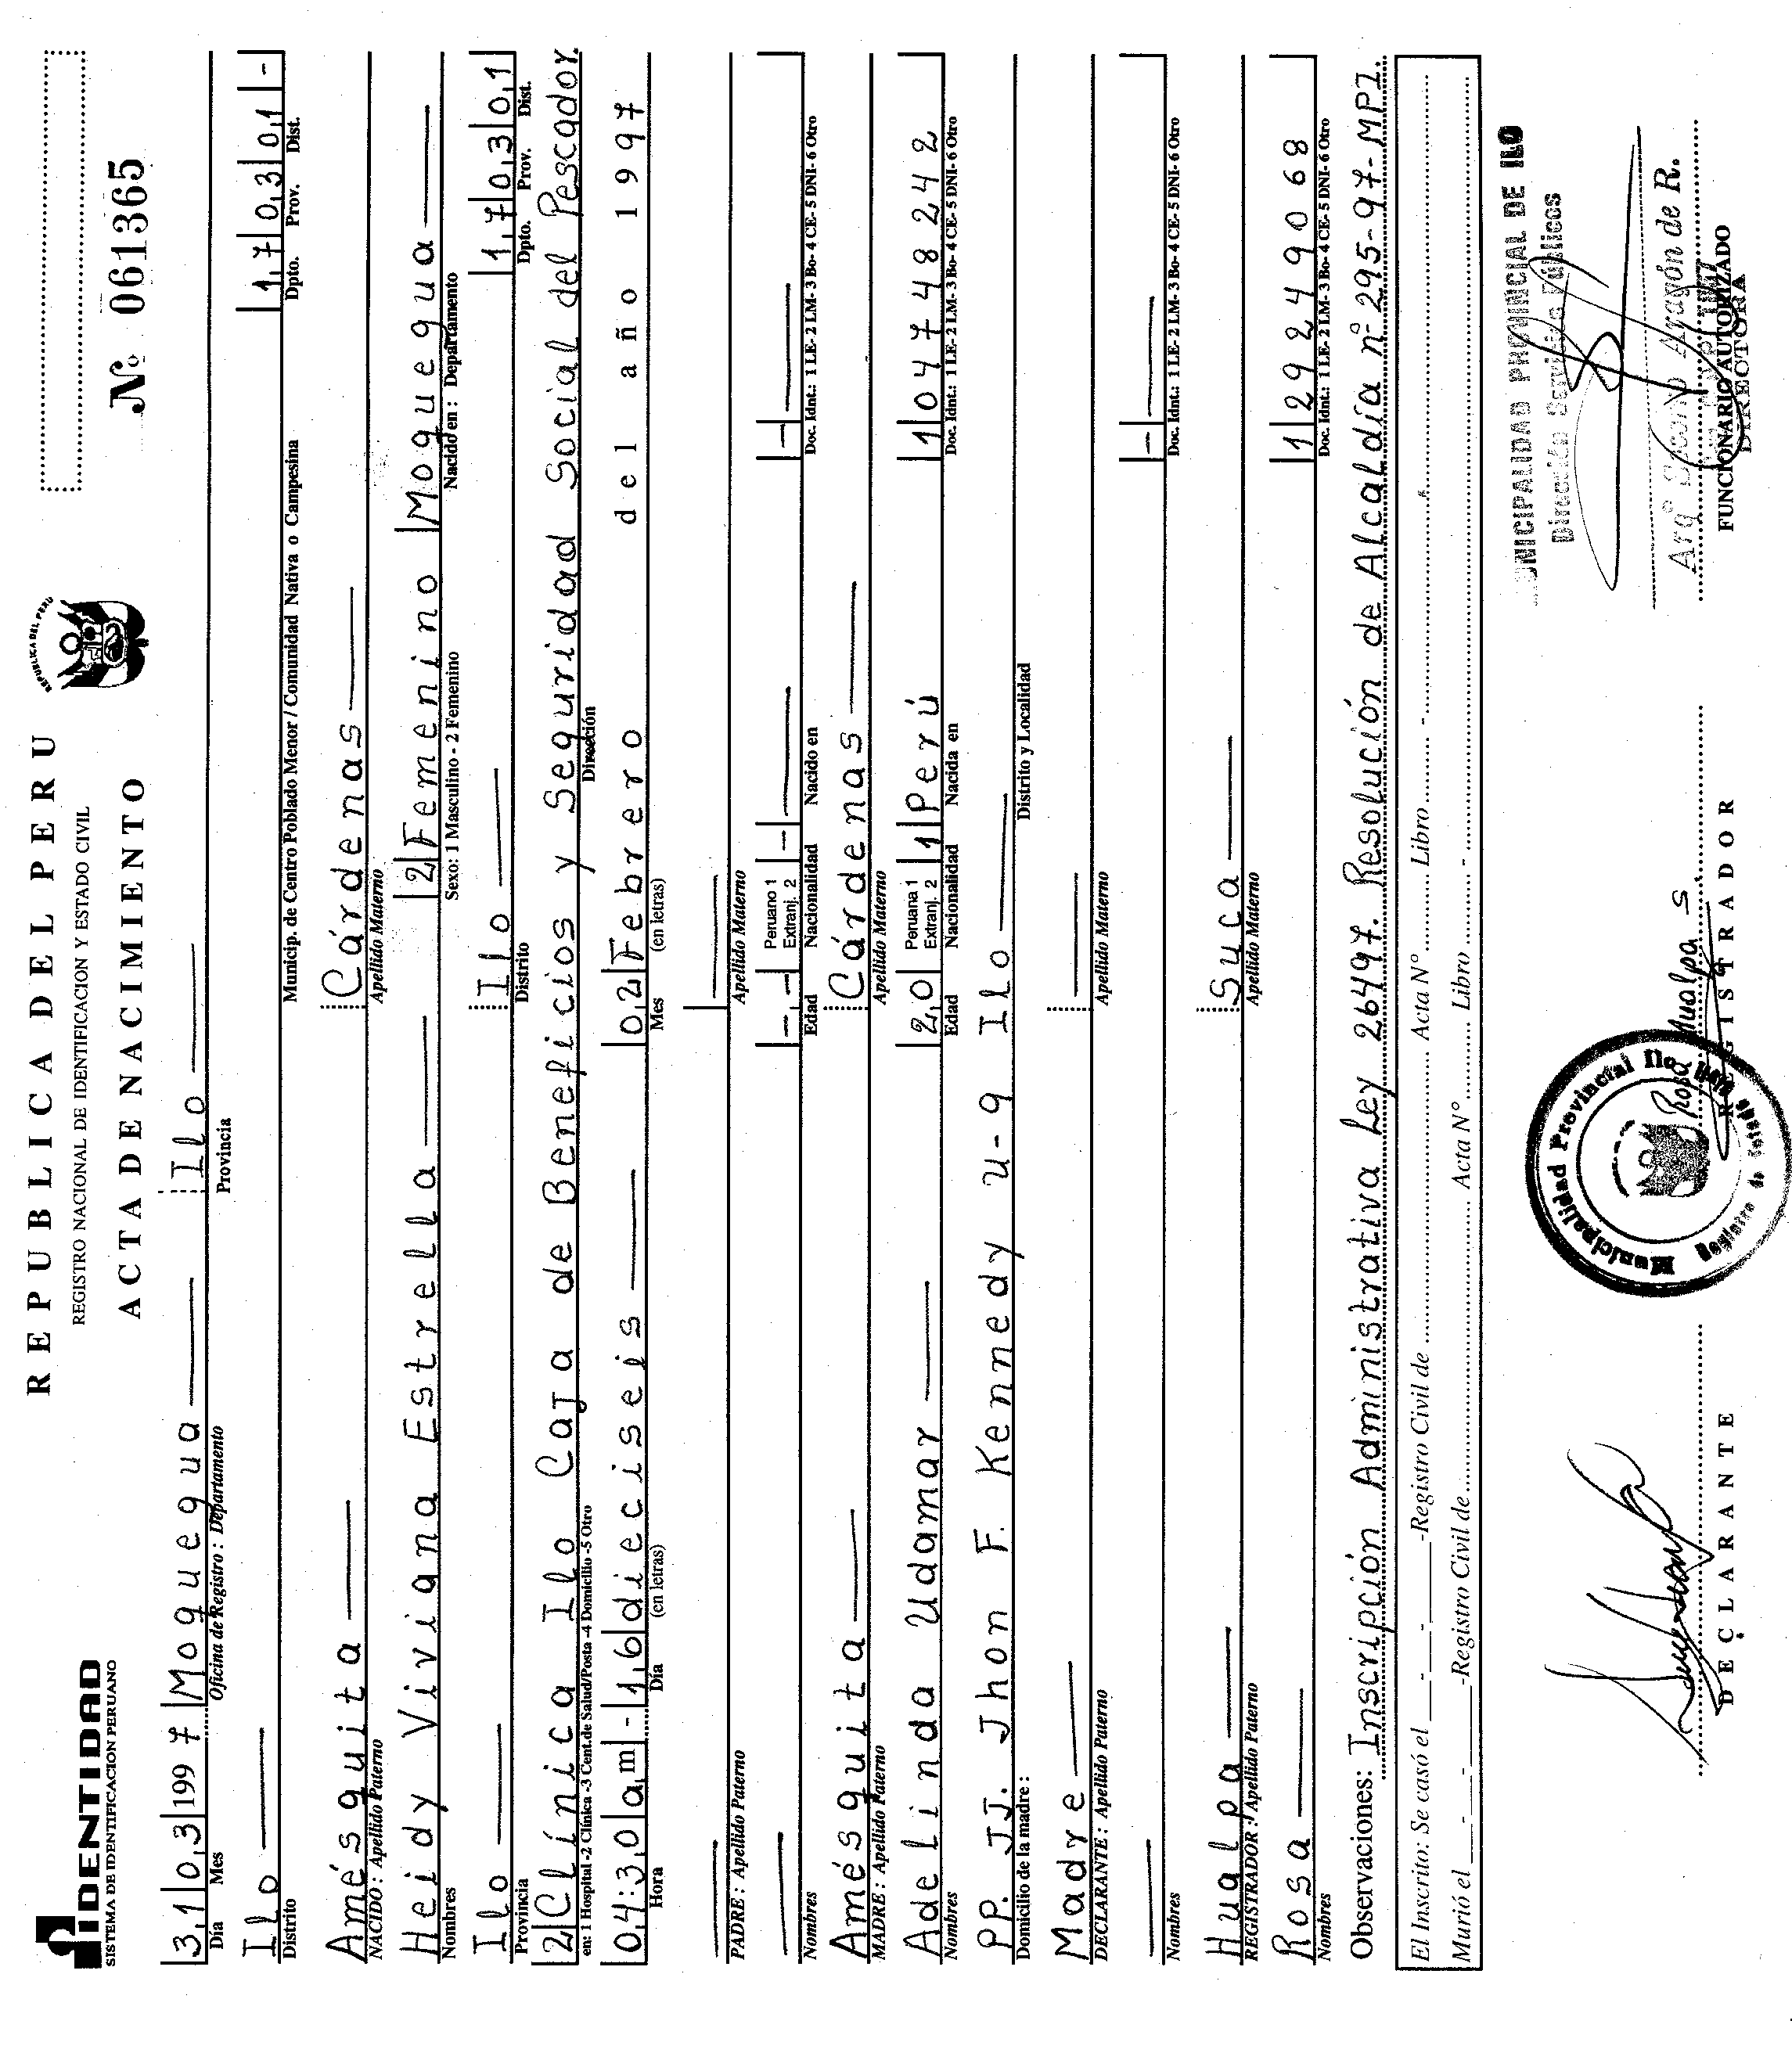 REPUBLICA DEL PERU
REGISTRO NACIONAL DE IDENTIFICACION Y ESTADO CIVIL
ACTA DE NACIMIENTO
REPUBLICA DEL PERU
IDENTIDAD
SISTEMA DE IDENTIFICACION PERUANO
Nº 061365
31 03 1997 Moquegua Ilo
Día Mes Oficina de Registro : Departamento Provincia
Ilo 17 03 01 -
Distrito Municip. de Centro Poblado Menor / Comunidad Nativa o Campesina Dpto. Prov. Dist.
Amésquita Cárdenas
NACIDO : Apellido Paterno Apellido Materno
Heidy Viviana Estrella 2 Femenino Moquegua
Nombres Sexo: 1 Masculino - 2 Femenino Nacido en : Departamento
Ilo Ilo 17 03 01
Provincia Distrito Dpto. Prov. Dist.
2 Clínica Ilo Caja de Beneficios y Seguridad Social del Pescador.
en: 1 Hospital -2 Clínica -3 Cent.de Salud/Posta -4 Domicilio -5 Otro Dirección
04:30 am - 16 dieciseis 02 Febrero del año 1997
Hora Día (en letras) Mes (en letras)
PADRE : Apellido Paterno Apellido Materno
- - Peruano 1 Extranj. 2 - -
Nombres Edad Nacionalidad Nacido en Doc. Idnt.: 1 LE- 2 LM- 3 Bo- 4 CE- 5 DNI- 6 Otro
Amésquita Cárdenas
MADRE : Apellido Paterno Apellido Materno
Adelinda Udamar 20 Peruana 1 Extranj. 2 1 Perú 1 04748242
Nombres Edad Nacionalidad Nacida en Doc. Idnt.: 1 LE- 2 LM- 3 Bo- 4 CE- 5 DNI- 6 Otro
PP. JJ. Jhon F. Kennedy U-9 Ilo
Domicilio de la madre : Distrito y Localidad
Madre
DECLARANTE : Apellido Paterno Apellido Materno
-
Nombres Doc. Idnt.: 1 LE- 2 LM- 3 Bo- 4 CE- 5 DNI- 6 Otro
Hualpa Suca
REGISTRADOR : Apellido Paterno Apellido Materno
Rosa 1 29249068
Nombres Doc. Idnt.: 1 LE- 2 LM- 3 Bo- 4 CE- 5 DNI- 6 Otro
Observaciones: Inscripción Administrativa Ley 26497. Resolución de Alcaldía nº 295-97-MPI.
El Inscrito: Se casó el - - -Registro Civil de Acta Nº Libro -
Murió el - - -Registro Civil de Acta Nº Libro -
DECLARANTE
Municipalidad Provincial Ilo
Rosa Hualpa S.
REGISTRADOR
MUNICIPALIDAD PROVINCIAL DE ILO
Dirección Servicios Públicos
Aragón de R.
FUNCIONARIO AUTORIZADO
DIRECTORA